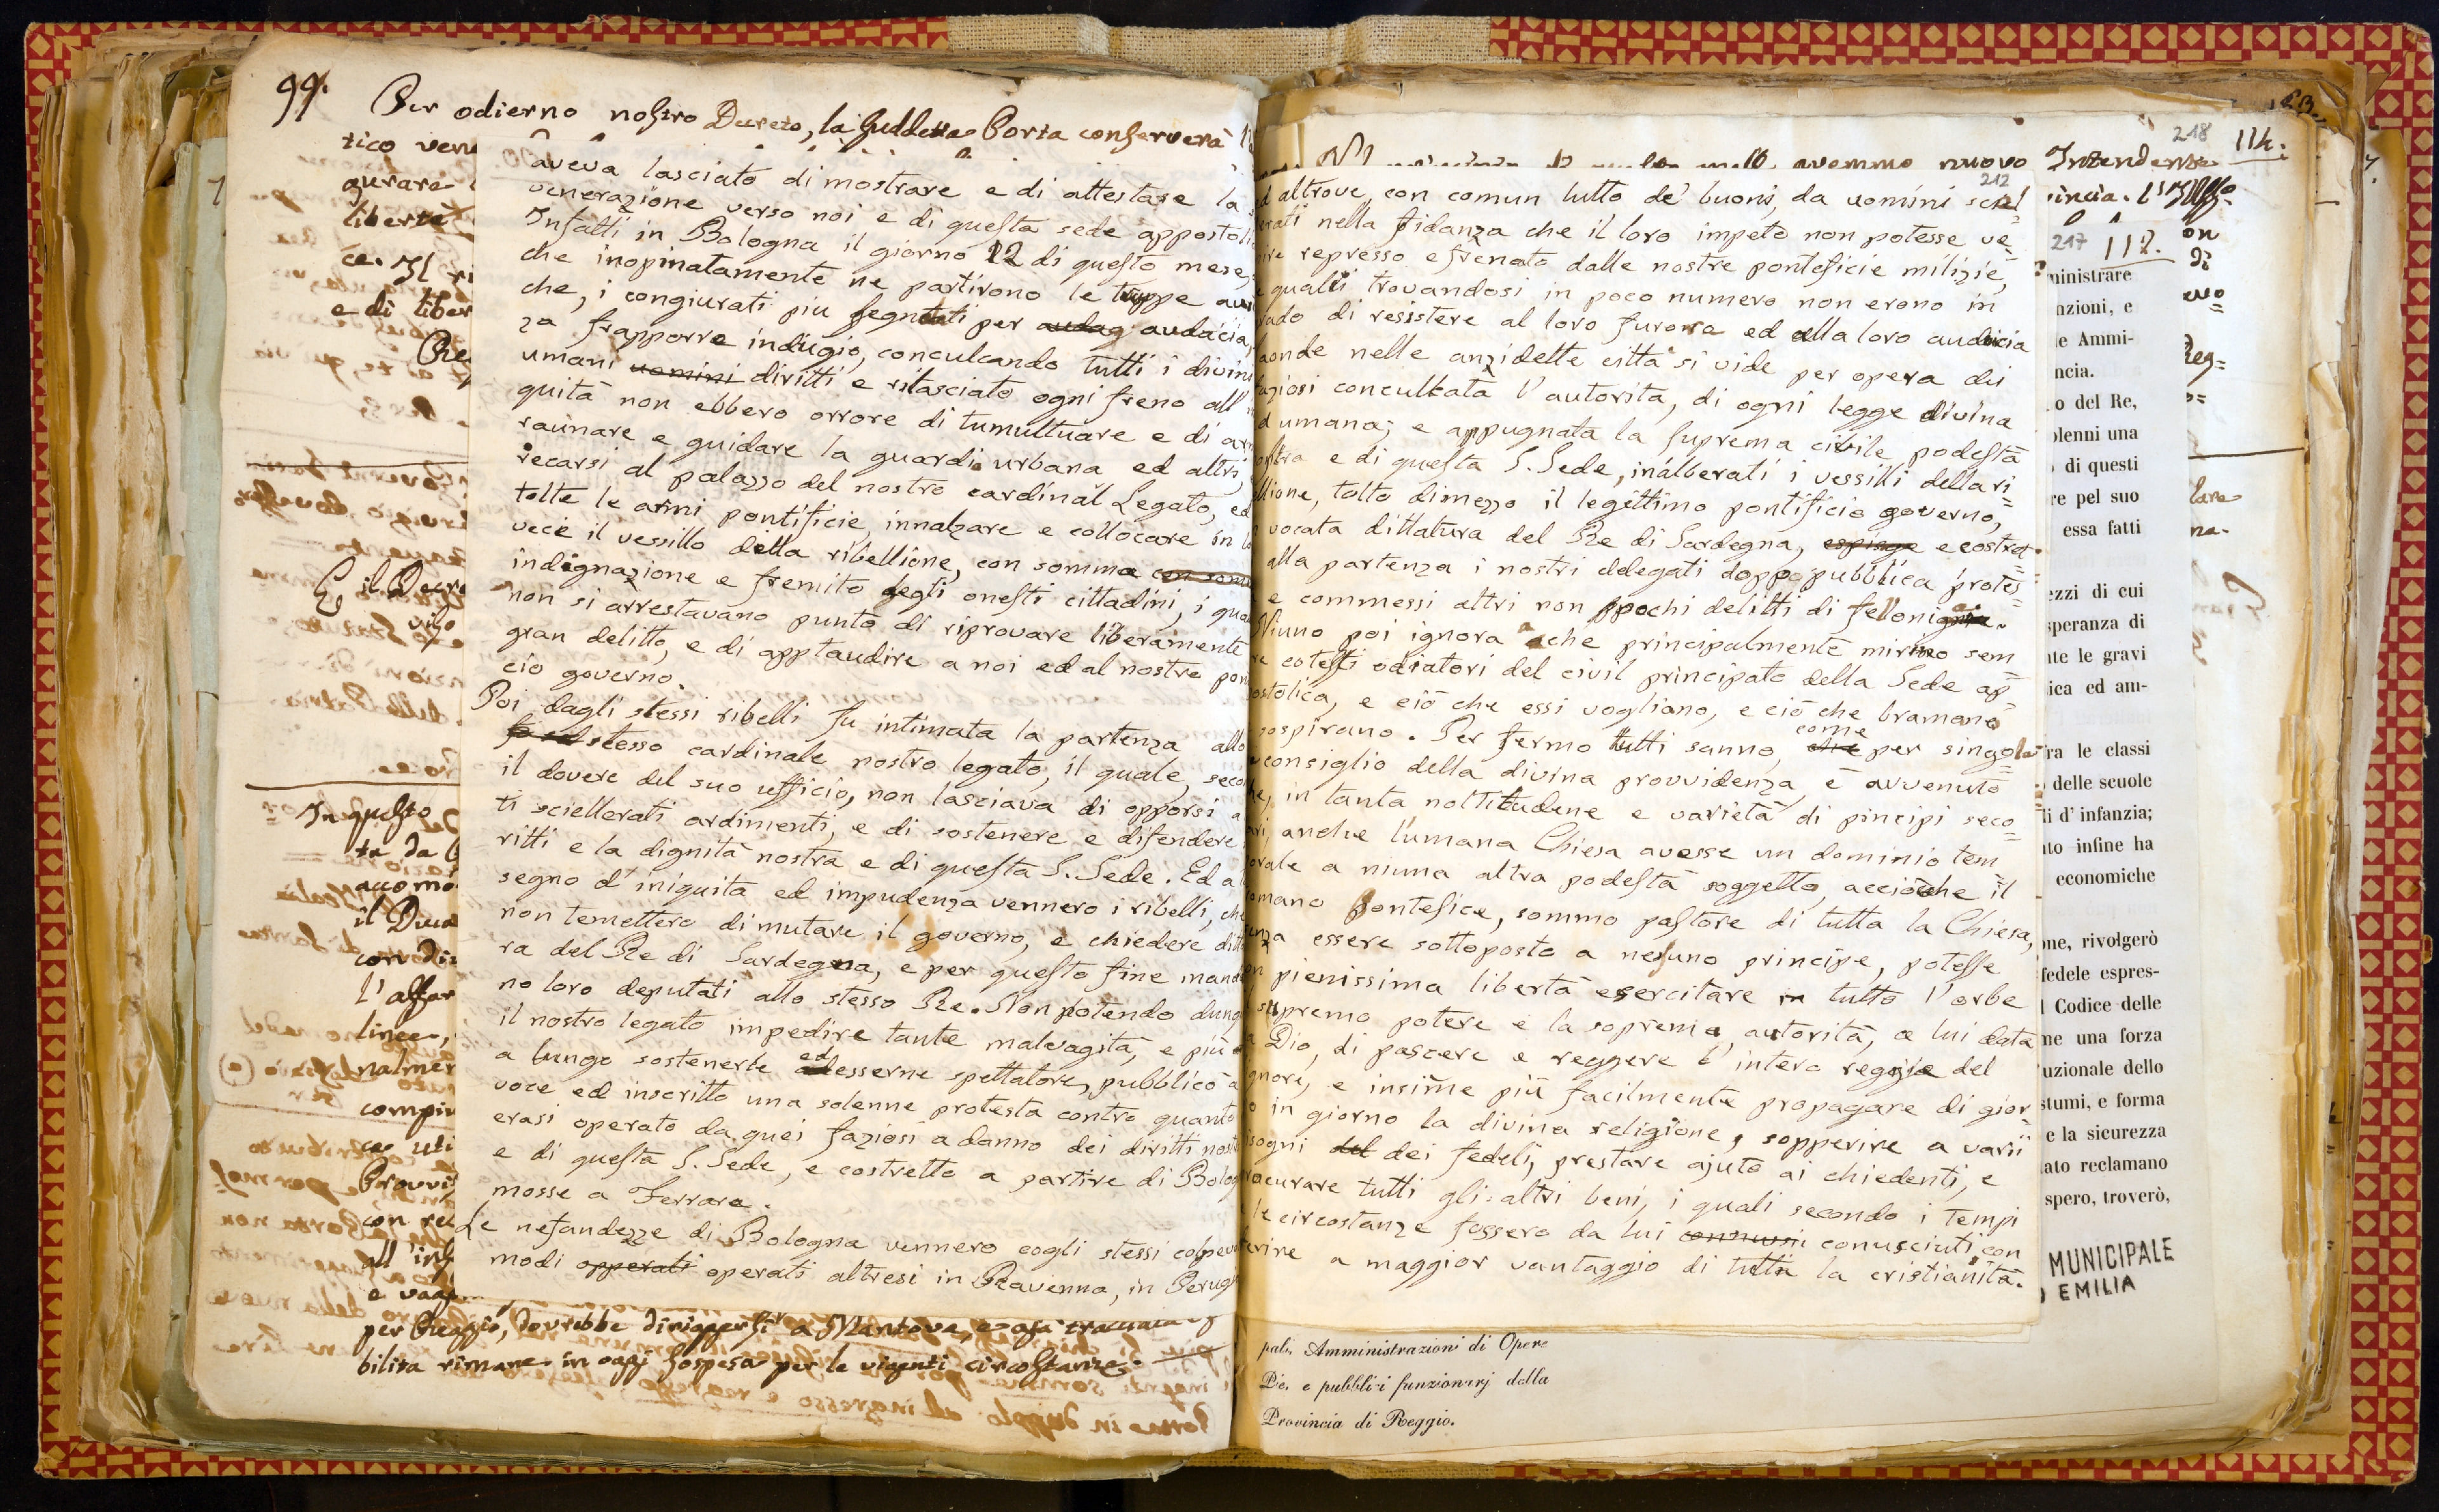 99.
Per odierno nostro Decreto, la suddetta Porta conserverà
tico
gurare
libertà
ce. Il
e di liber
E, il Decre
In questo
ta da
il Duca
l'affar
linee,
nalmen
compiu
con
all'
per Reggio, dovrebbe diriggersi a Mantova,
bilita rimane in oggi sospesa per le vigenti circostanze.
aveva lasciato di mostrare e di attestare la
venerazione verso noi e di questa sede appostoli
Infatti in Bologna il giorno 12 di questo mese,
che inopinatamente ne partirono le truppe aus
che, i congiurati piu segnalati per audag audacia,
za frapporre indugio, conculcando tutti i divini
umani uomini diritti e rilasciato ogni freno all'
quità non ebbero orrore di tumultuare e di ar
raunare e guidare la guardia urbana ed altri,
recarsi al palazzo del nostro cardinal Legato, ed
tolte le armi pontificie, innalzare e collocare in
vece il vessillo della ribellione, con somma con som
indignazione e fremito degli onesti cittadini, i qua
non si arrestavano punto di riprovare liberamente
gran delitto, e di applaudire a noi ed al nostro pon
cio governo.
Poi dagli stessi ribelli fu intimata la partenza allo
stesso cardinale nostro legato, il quale, seco
il dovere del suo ufficio, non lasciava di opporsi a
ti sciellerati ardimenti, e di sostenere e difendere
ritti e la dignità nostra e di questa S. Sede. Ed a
segno d'iniquita ed impudenza vennero i ribelli, che
non temettero di mutare il governo, e chiedere ditt
ra del Re di Sardegna, e per questo fine manda
no loro deputati allo stesso Re. Non potendo dunq
il nostro legato impedire tante malvagità, e più
a lungo sostenerle ed esserne spettatore, pubblicò a
voce ed inscritto una solenne protesta contro quanto
erasi operato da quei faziosi a danno dei diritti nost
e di questa S. Sede, e costretto a partire di Bolog
mosse a Ferrara.
Le nefandezze di Bologna vennero cogli stessi colpevo
modi opperati operati altresi in Ravenna, in Perug
avemmo nuovo
218
114.
Intendenza
incia. l'
212
d altrove, con comun lutto de' buoni, da uomini scel=
erati nella fidanza che il loro impeto non potesse ve=
nire represso e frenato dalle nostre pontificie milizie,
e quali trovandosi in poco numero non erano in
rado di resistere al loro furore ed alla loro audacia
laonde nelle anzidette città si vide per opera dei
faziosi conculcata l'autorità, di ogni legge divina
d umana; e appugnata la suprema civile podestà
ostra e di questa S. Sede, inalberati i vessilli della ri=
llione, tolto dimezzo il legittimo pontificio governo,
vocata dittatura del Re di Sardegna, espinge e costret
alla partenza i nostri delegati doppo pubblica protes=
e commessi altri non ppochi delitti di fellonia.
Niuno poi ignora che principalmente mirino sem=
re cotesti odiatori del civil principato della Sede ap=
ostolica, e ciò che essi vogliano, e ciò che bramano
sospirano. Per fermo tutti sanno, che come per singola=
consiglio della divina provvidenza è avvenuto
he, in tanta moltitudine e varietà di pincipi seco=
ari, anche l'umana Chiesa avesse un dominio tem=
orale a niuna altra podestà soggetto, acciòche il
omano Pontefice, sommo pastore di tutta la Chiesa,
enza essere sottoposto a nessuno principe, potesse
on pienissima libertà esercitare in tutto l'orbe
supremo potere e la soprema autorità, a lui data
a Dio, di pascere e reggere l'intero reggia del
gnore, e insime più facilmente propagare di gior=
o in giorno la divina religione, sopperire a varii
isogni del dei fedeli, prestare ajuto ai chiedenti, e
rocurare tutti gli altri beni, i quali secondo i tempi
le circostanze fossero da lui connusui conusciuti con
erire a maggior vantaggio di tutta la cristianità.
217
112.
ministrare
nzioni, e
le Ammi-
ncia.
o del Re,
olenni una
di questi
re pel suo
essa fatti
ezzi di cui
speranza di
nte le gravi
ica ed am-
ra le classi
delle scuole
li d'infanzia;
ato infine ha
economiche
one, rivolgerò
fedele espres-
l Codice delle
me una forza
tuzionale dello
stumi, e forma
e la sicurezza
ato reclamano
spero, troverò,
MUNICIPALE
EMILIA
pali, Amministrazioni di Opere
Pie, e pubblici funzionarj della
Provincia di Reggio.